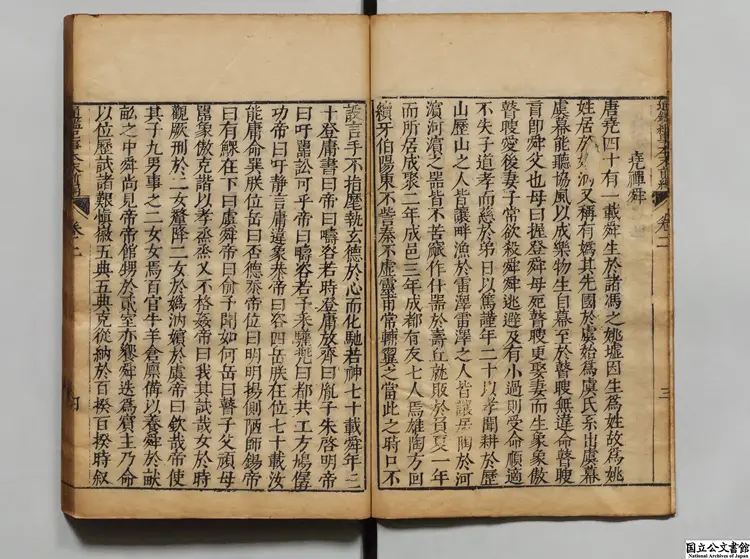 堯禪舜
卷二
三
唐堯四十有一載舜生於諸馮之姚墟因生爲姚故爲姚
姓居於媯汭又稱有媯其先國於虞始爲虞氏系出虞幕
虞幕能聽協風以成樂物生自幕至於瞽瞍無違命瞽瞍
言卽舜父也母曰握登舜母死瞽瞍更娶妻而生象象傲
瞽瞍愛後妻子常欲殺舜舜逃避及有小過則受命順適
不失子道孝而慈於弟日以篤謹年二十以孝聞耕於歷
山歷山之人皆讓畔漁於雷澤雷澤之人皆讓居陶於河
濱河濱之器皆不苦窳作什器於壽丘就販於負夏一年
而所居成聚二年成邑三年成都有友七人焉雄陶方回
續牙伯陽東不訾秦不虛靈甫常輔翼之當此之時口不
設言手不指麾執玄德於心而化馳若神七十載舜年三
十登庸書曰帝曰疇咨若時登庸放齊曰胤子朱啓明帝
曰吁嚚訟可乎帝曰疇咨若予采驩兜曰都共工方鳩僝
功帝曰吁靜言庸違象恭帝曰咨四岳朕在位七十載汝
能庸命巽朕位岳曰否德忝帝位曰明明揚側陋師錫帝
曰有鰥在下曰虞舜帝曰俞予聞如何岳曰瞽子父頑母
嚚象傲克諧以孝烝烝乂不格姦帝曰我其試哉女於時
觀厥刑於二女釐降二女於媯汭嬪於虞帝曰欽哉帝使
其子九男事之二女女焉百官牛羊倉廩備以養舜於畎
畝之中舜尚見帝帝館甥於貳室亦饗舜迭爲賓主乃命
以位歷試諸艱愼徽五典五典克從納於百揆百揆時敘
国立公文書館
National Archives of Japan